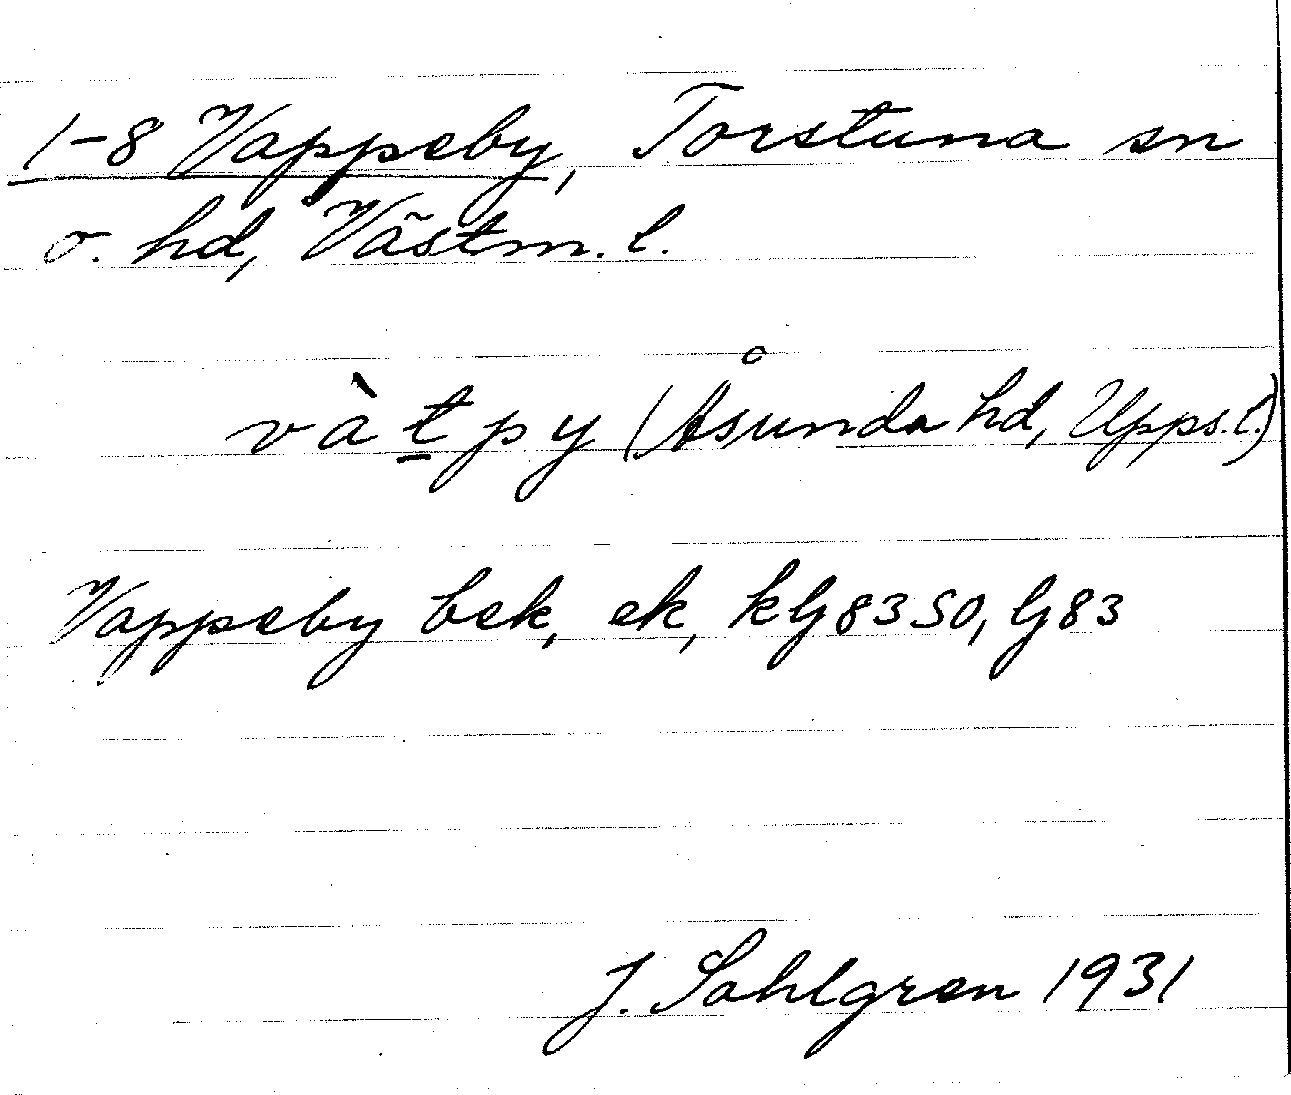 1-8 Vappeby, Torstuna sn
o. hd, Västm. l.
vàtpy (Åsunda hd, Upps. l.)
Vappeby bek, ek, klj 83 SO, lj 83
J. Sahlgren 1931